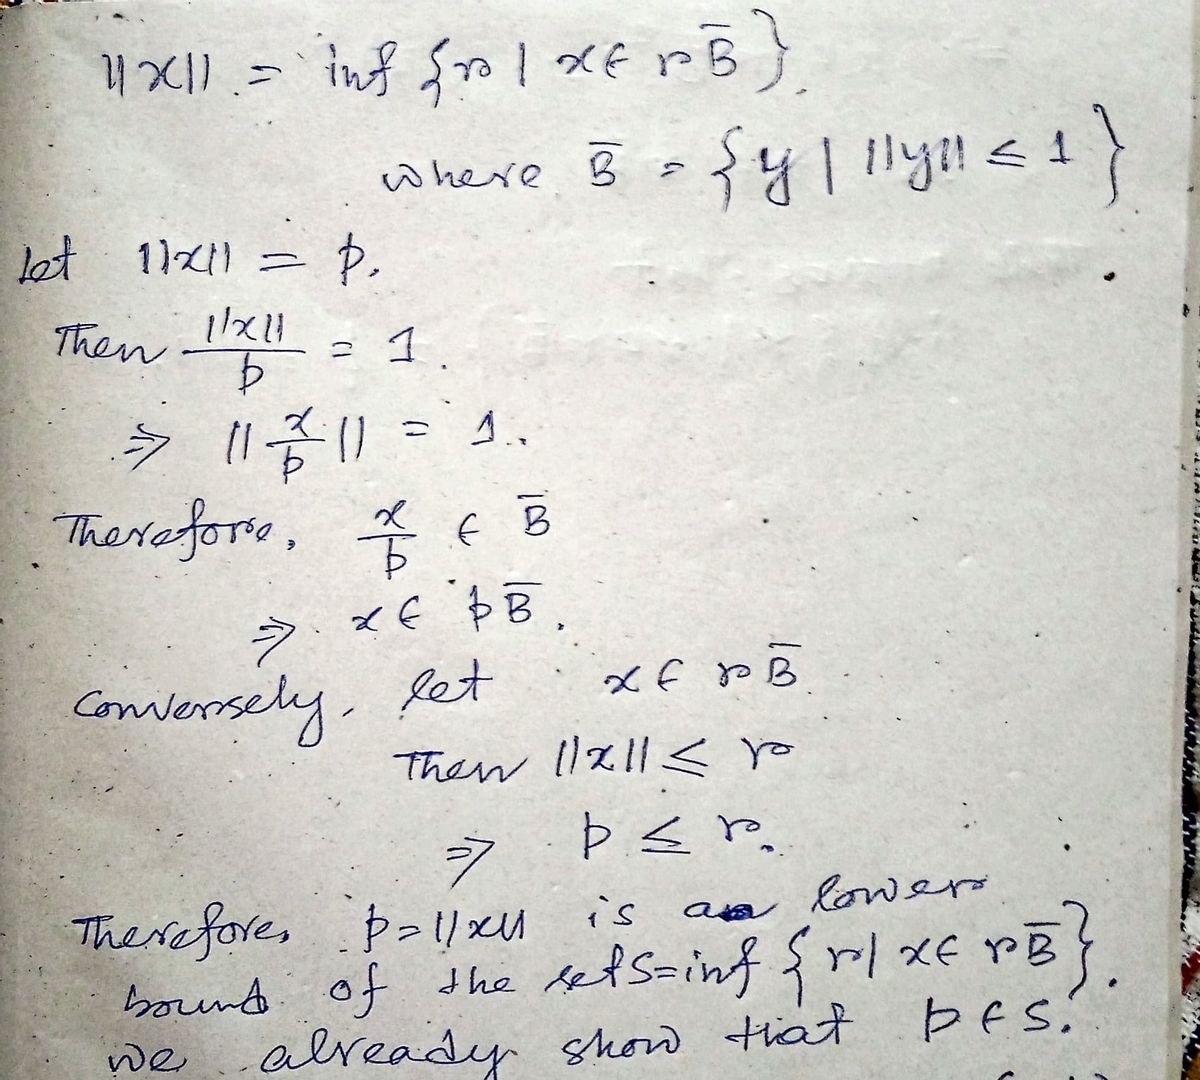 ||x|| = inf {r | x ∈ r B̅}.
where B̅ = {y | ||y|| ≤ 1}
Let ||x|| = p.
Then ||x||/p = 1.
⇒ ||x/p|| = 1.
Therefore, x/p ∈ B̅
⇒ x ∈ p B̅.
Conversely, let x ∈ r B̅.
Then ||x|| ≤ r
⇒ p ≤ r.
Therefore, p = ||x|| is a lower
bound of the set S = inf {r | x ∈ r B̅}.
we already show that p ∈ S.